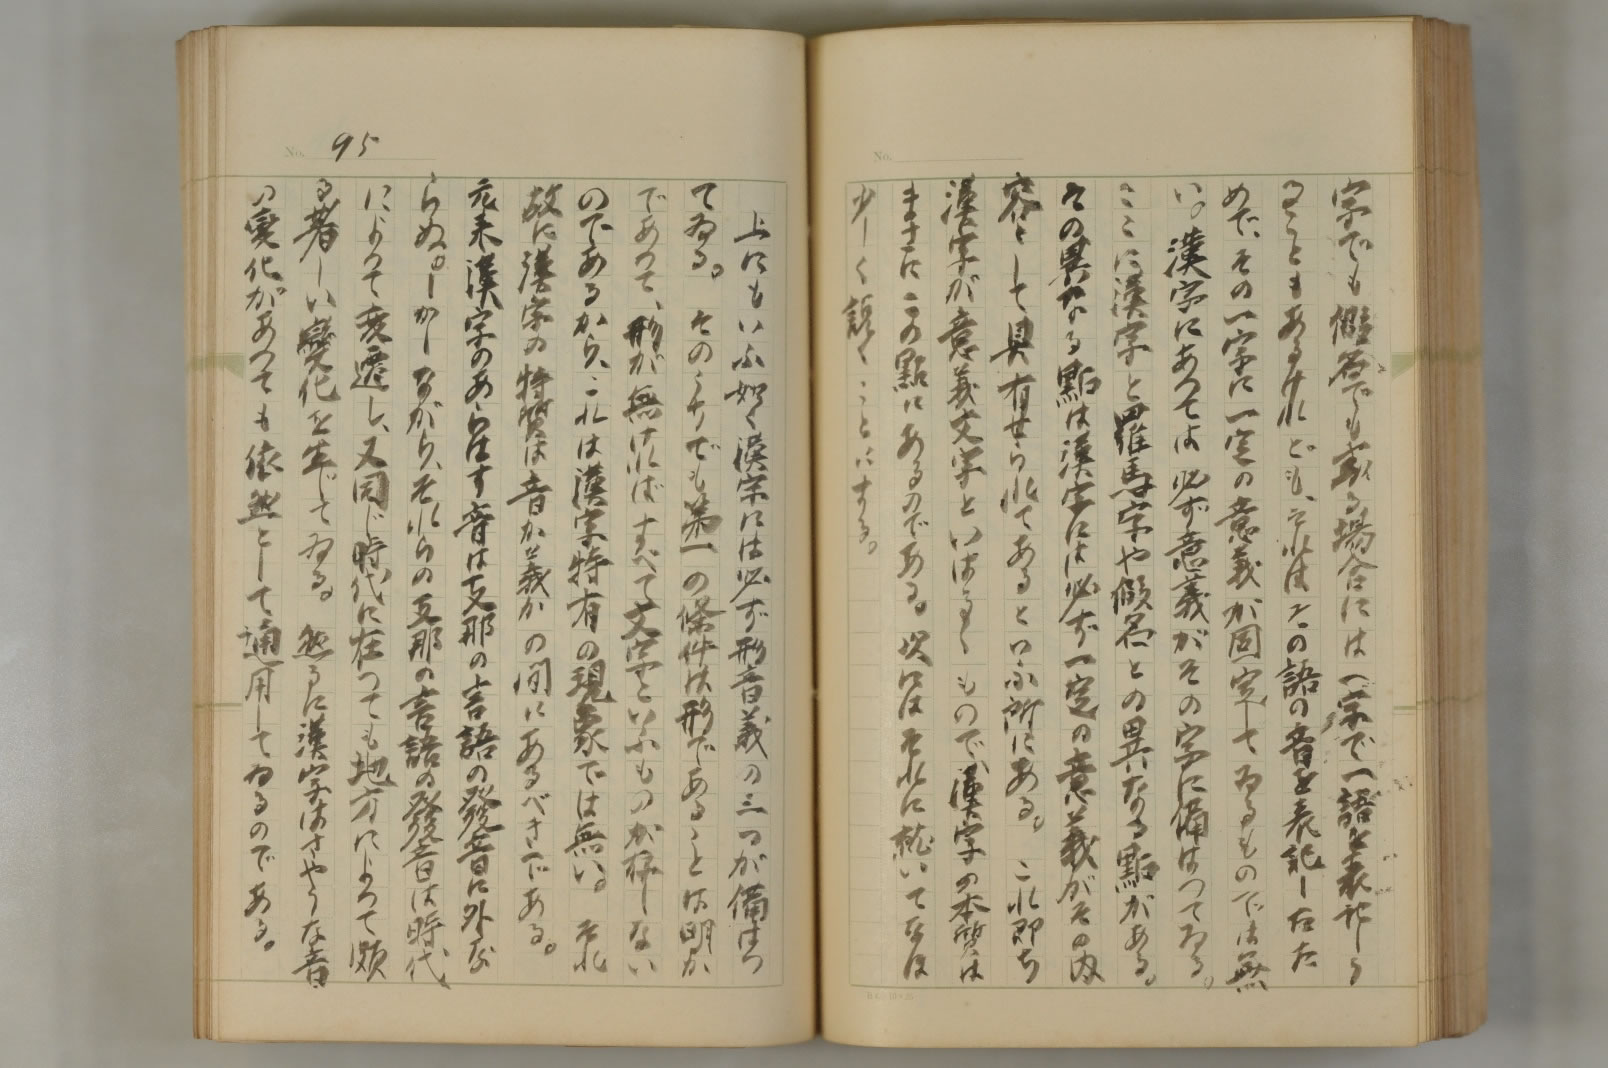 字でも假名でも或る場合には一字で一語を表記しう
ることもあるけれども、それはその語の音を表記したた
めで、その一字に一定の意義が固定してゐるものでは無
い。漢字にあつては必ず意義がその字に備はつてゐる。
ここに漢字と羅馬字や假名との異なる點がある。
その異なる點は漢字には必ず一定の意義がその内
容として具有せられてあるといふ所にある。これ即ち
漢字が意義文字といはるるもので、漢字の本質は
まさにこの點にあるのである。次にはそれに就いてなほ
少しく説くことにする。
No.
No. 95
上にもいふ如く漢字には必ず形音義の三つが備はつ
てゐる。そのうちでも第一の條件は形であることは明か
であつて、形が無ければすべて文字といふものが存しない
のであるから、これは漢字特有の現象では無い。それ
故に漢字の特質は音か義かの間にあるべきである。
元来漢字のあらはす音は支那の言語の發音に外な
らぬ。しかしながら、それらの支那の言語の發音は時代
によつて変遷し、又同じ時代に在つても地方によつて頗
る著しい變化を生じてゐる。然るに漢字はさやうな音
の変化があつても依然として通用してゐるのである。